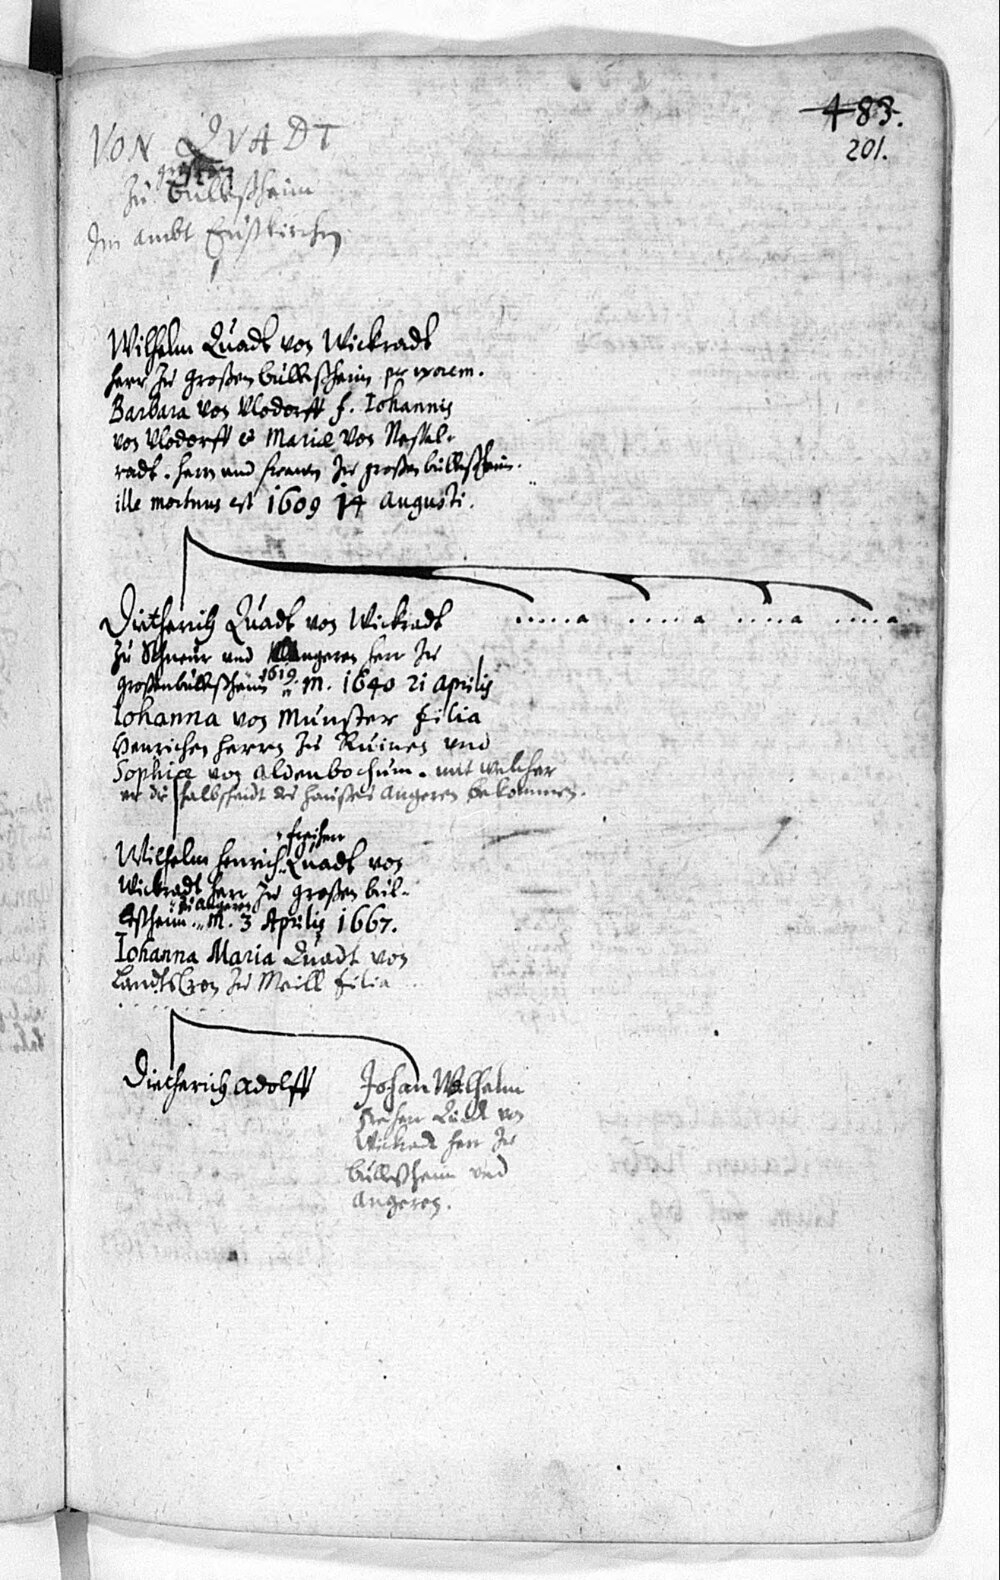 483.
201.
VON QVADT
großen
Zu Bulleßheim
Im ambt Eußkirchen
Wilhelm Quadt von Wickradt
herr Zu Großen büllesheim per uxorem.
Barbara von Vlodorff f. Iohannis
von Vlodorff et Mariæ von Nessel-
radt. herrn und frawen Zu großen büllesheim.
ille mortuus est 1609 14 Augusti.
Dietherich Quadt von Wickradt
Zu Schneur und Angeren herr Zu
großenbüllesheim 1619. M. 1640 21 Aprilis
Iohanna von Münster filia
Henrichen herren Zu Ruinen und
Sophiæ von Aldenbochum. mit welcher
er die halbscheidt des haußes Angeren bekommen.
.....a ....a ....a ....a
freiherr
Wilhelm henrich Quadt von
Wickradt herr Zu großen bül-
Zu Angeren
lesheim. M. 3 Aprilis 1667.
Iohanna Maria Quadt von
Landtscron Zu Meill filia
Dietherich Adolff
Johan Wilhelm
freiherr Quadt von
Wickradt herr Zu
Bülleßheim und
Angeren.